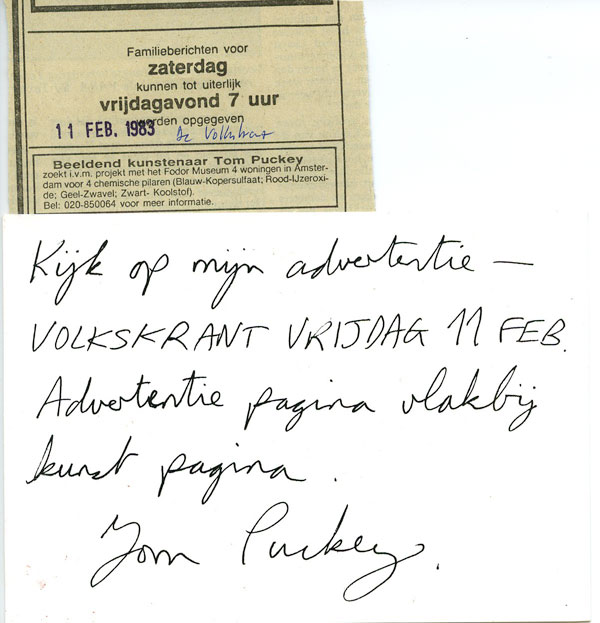 Familieberichten voor
zaterdag
kunnen tot uiterlijk
vrijdagavond 7 uur
worden opgegeven
11 FEB. 1983 de Volkskrant
Beeldend kunstenaar Tom Puckey
zoekt i.v.m. projekt met het Fodor Museum 4 woningen in Amster-
dam voor 4 chemische pilaren (Blauw-Kopersulfaat; Rood-IJzeroxi-
de; Geel-Zwavel; Zwart- Koolstof).
Bel: 020-850064 voor meer informatie.
Kijk op mijn advertentie —
VOLKSKRANT VRIJDAG 11 FEB.
Advertentie pagina vlakbij
kunst pagina.
Tom Puckey.